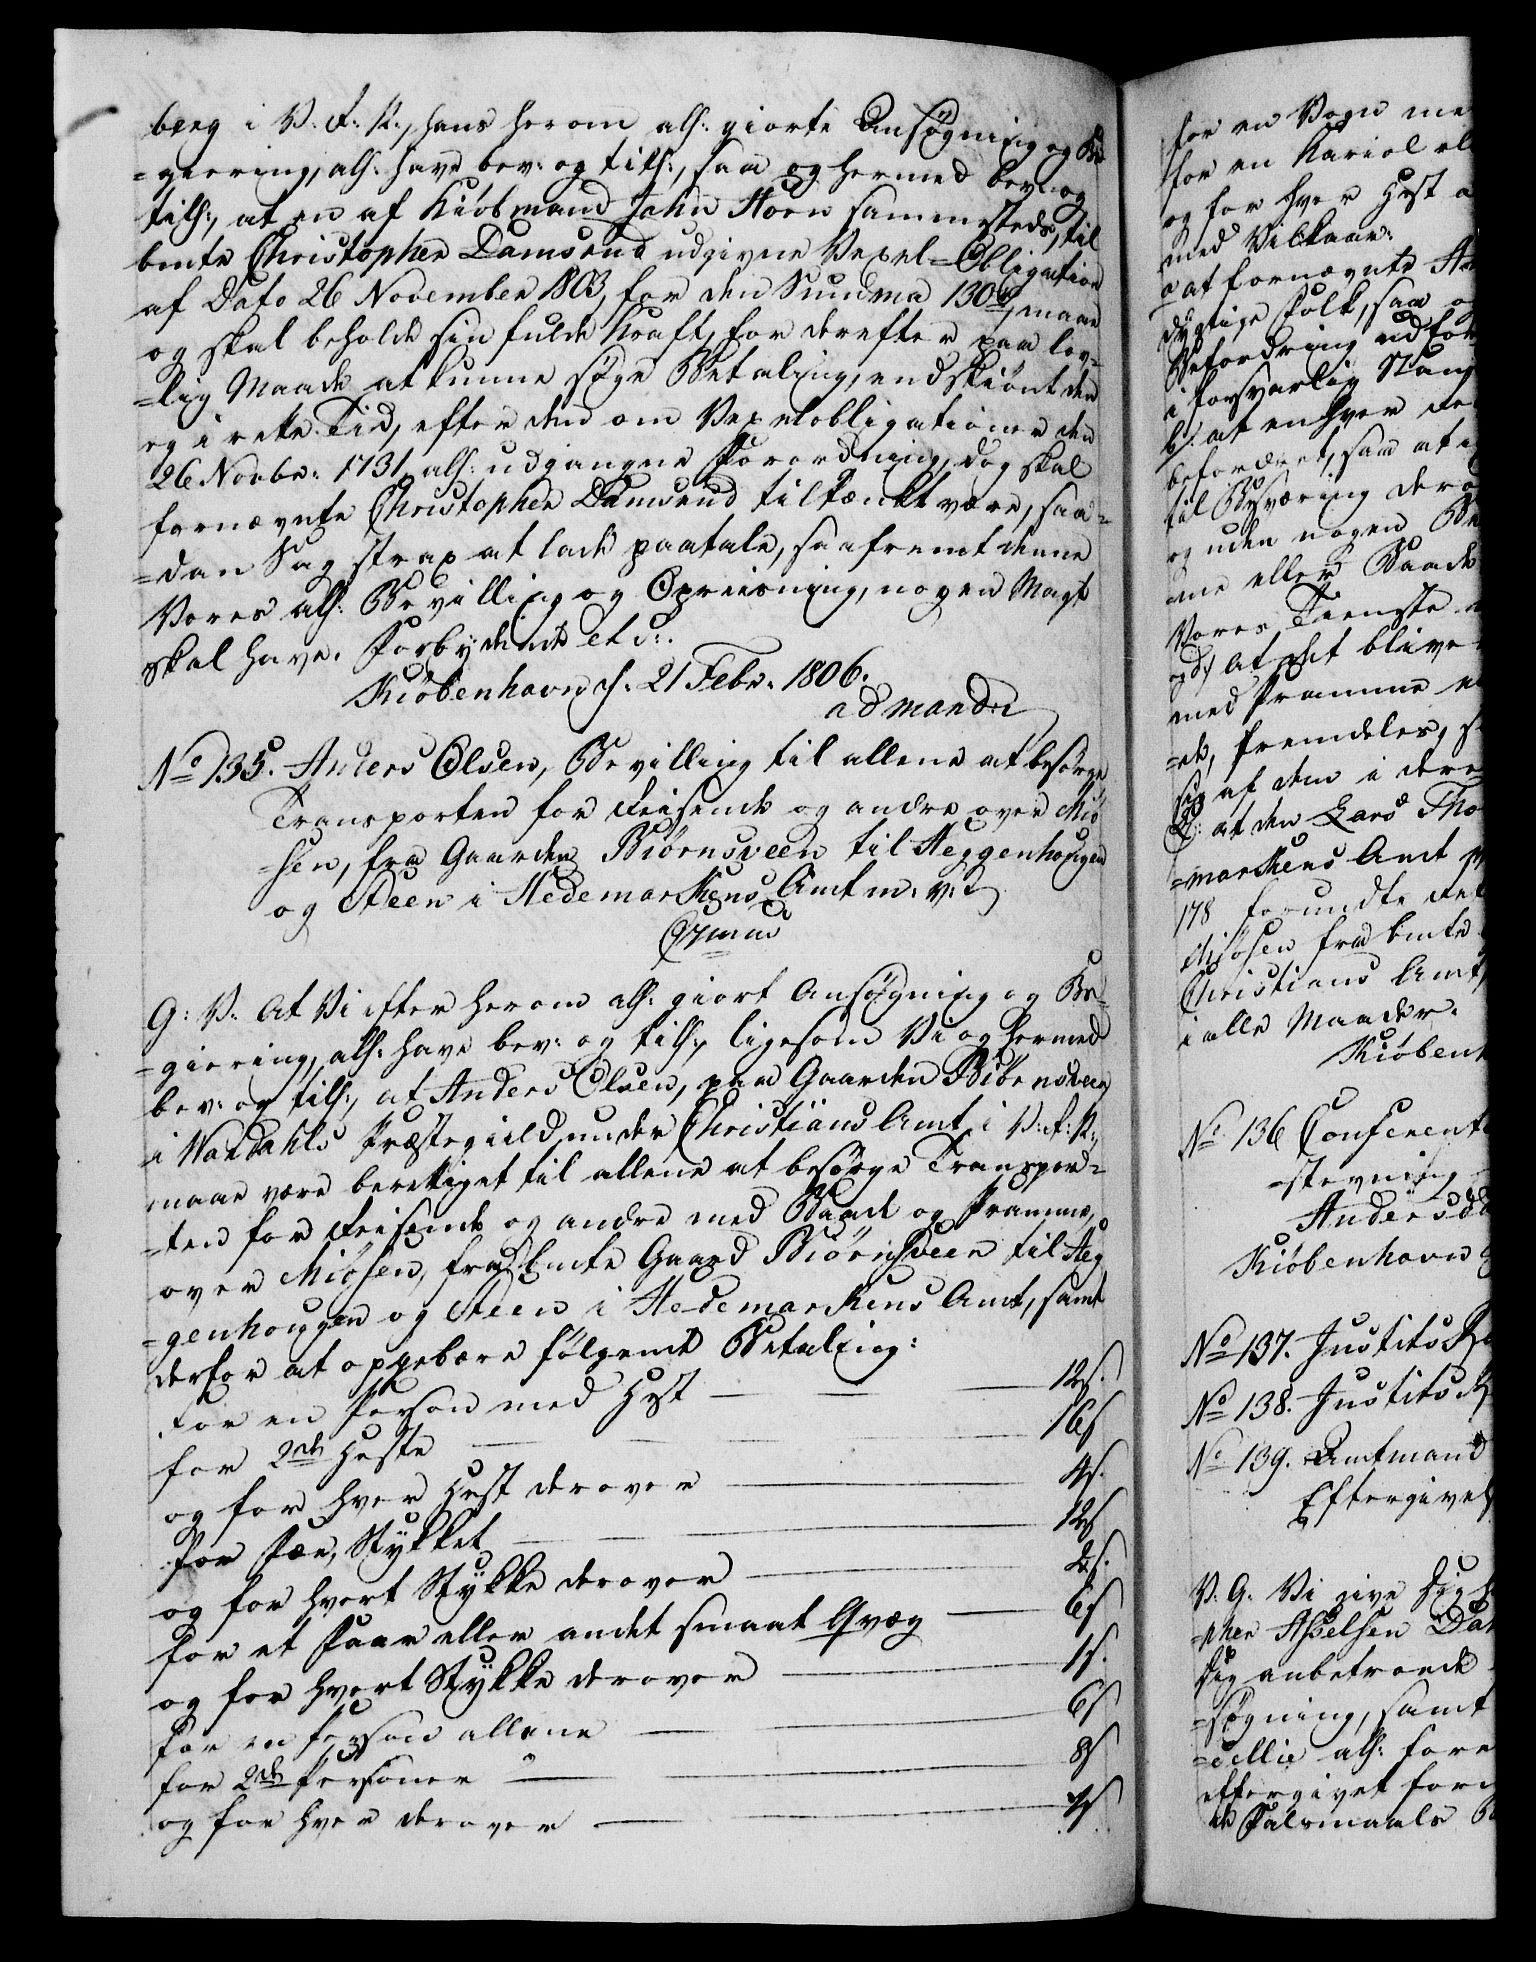 berg i V. F. K., hans herom alh: giorte Ansøgning og Be
=giering, alh: have bev: og tilh:, saa og hermed bev: og
tilh:, at en af Kiøbmand John Horn sammesteds, til
bmte Christopher Damsrud udgivne Vexel-Obligation
af Dato 26 November 1803, for den Summa 130 rd, maae
og skal beholde sin fulde Kraft, for derefter paa lov-
=lig Maade at kunne søge Betaling, endskiønt den
ey i rette Tid, efter den om Vexelobligationer den
26 Novbr: 1731, alh: udgangne Forordning, dog skal
fornævnte Christopher Damsrud tiltænkt være, saa-
=dan Sag strax at lade paatale, saafremt denne
Vores alh: Bevilling og Opreisning, nogen Magt
skal have. Forbydende etc:.
Kiøbenhavn d: 21 Febr. 1806.
ad mandr:
No 135. Anders Olsen, Bevilling til allene at besørge
Transporten for Reisende og andre over Miø
=sen, fra Gaarden Biørnsveen til Heggenhougen
og Steen i Hedemarkens Amt m: v: d
Gr:
G: V: At Vi efter herom alh: giort Ansøgning og Be-
=giering, alh: have bev: og tilh:, ligesom Vi og hermed
bev: og tilh:, at Anders Olsen, paa Gaarden Biørnsveen
i Wardahls Præstegield under Christians Amt i V: R: N:,
maae være berettiget til allene at besørge Transpor-
=ten for Reisende og andre med Baade og Pramme,
over Miøsen, fra bmte Gaard Biørnsveen til Heg
=genhougen og Steen i Hedemarkens Amt, samt
derfor at oppebære følgende Betaling:
For en Person med Hest — 12 s.
for 2de Heste — 16 s
og for hver Hest derover — 4 s.
For Fæe, Stykket — 12 s
og for hvert Stykke derover — 2 s.
for et Faar eller andet smaat Qvæg — 6 s
og for hvert Stykke derover — 1 s.
For en Person allene — 6 s
for 2de Personer — 8 s
og for hver derover —
for en Vogn me
for en Kariol el
og for hver Hest
med Vilkaar:
a at fornævnte An
dygtige Folk, saa
Befordring
i forsvarlig Stan
b: at enhver
befordret, saa at
til Besværing der
og uden nogen Be
me eller Baade
Vores Tieneste
og d) at det blive
med Pramme
=et, fremdeles,
sig af den i der
at den Lars Tho
=markens Amt
178 forundte
Miøsen fra bmte
Christians Amt,
i alle Maader.
Kiøben
No 136 Conferent
=stevning
Anders
Kiøbenhavn
No 137. Justits R
No 138. Justits R
No 139. Amtmand
Eftergivel
V. G. Vi give Dig
=pher Axelsen Da
Dig anbetroede
=søgning, samt
=cellie alh: fore
eftergivet for
de Faldsmaals B